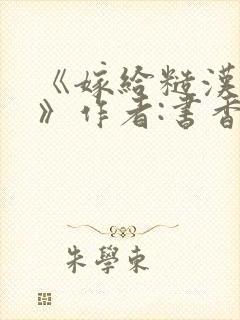 《嫁給糙漢
》作者:書香
朱學東